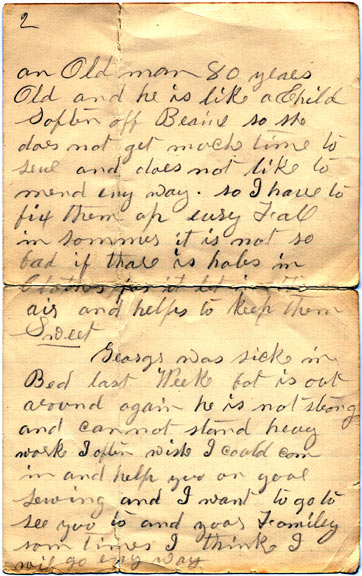 2
an Old man 80 years
Old and he is like a Child
Soften off Beains so she
does not get moch time to
sew and does not like to
mend eny way. so I have to
fix them op evry Fall
in sommer it is not so
bad if thare is holes in
Clothes for it let in
air and helps to keep them
Sweet
George was sick in
Bed last Week bot is out
around again he is not strong
and cannot stand heavy
work I often wish I coold com
in and help yoo on yoor
sewing and I want to go to
see yoo to and yoor Familey
som times I think I
will go eny way